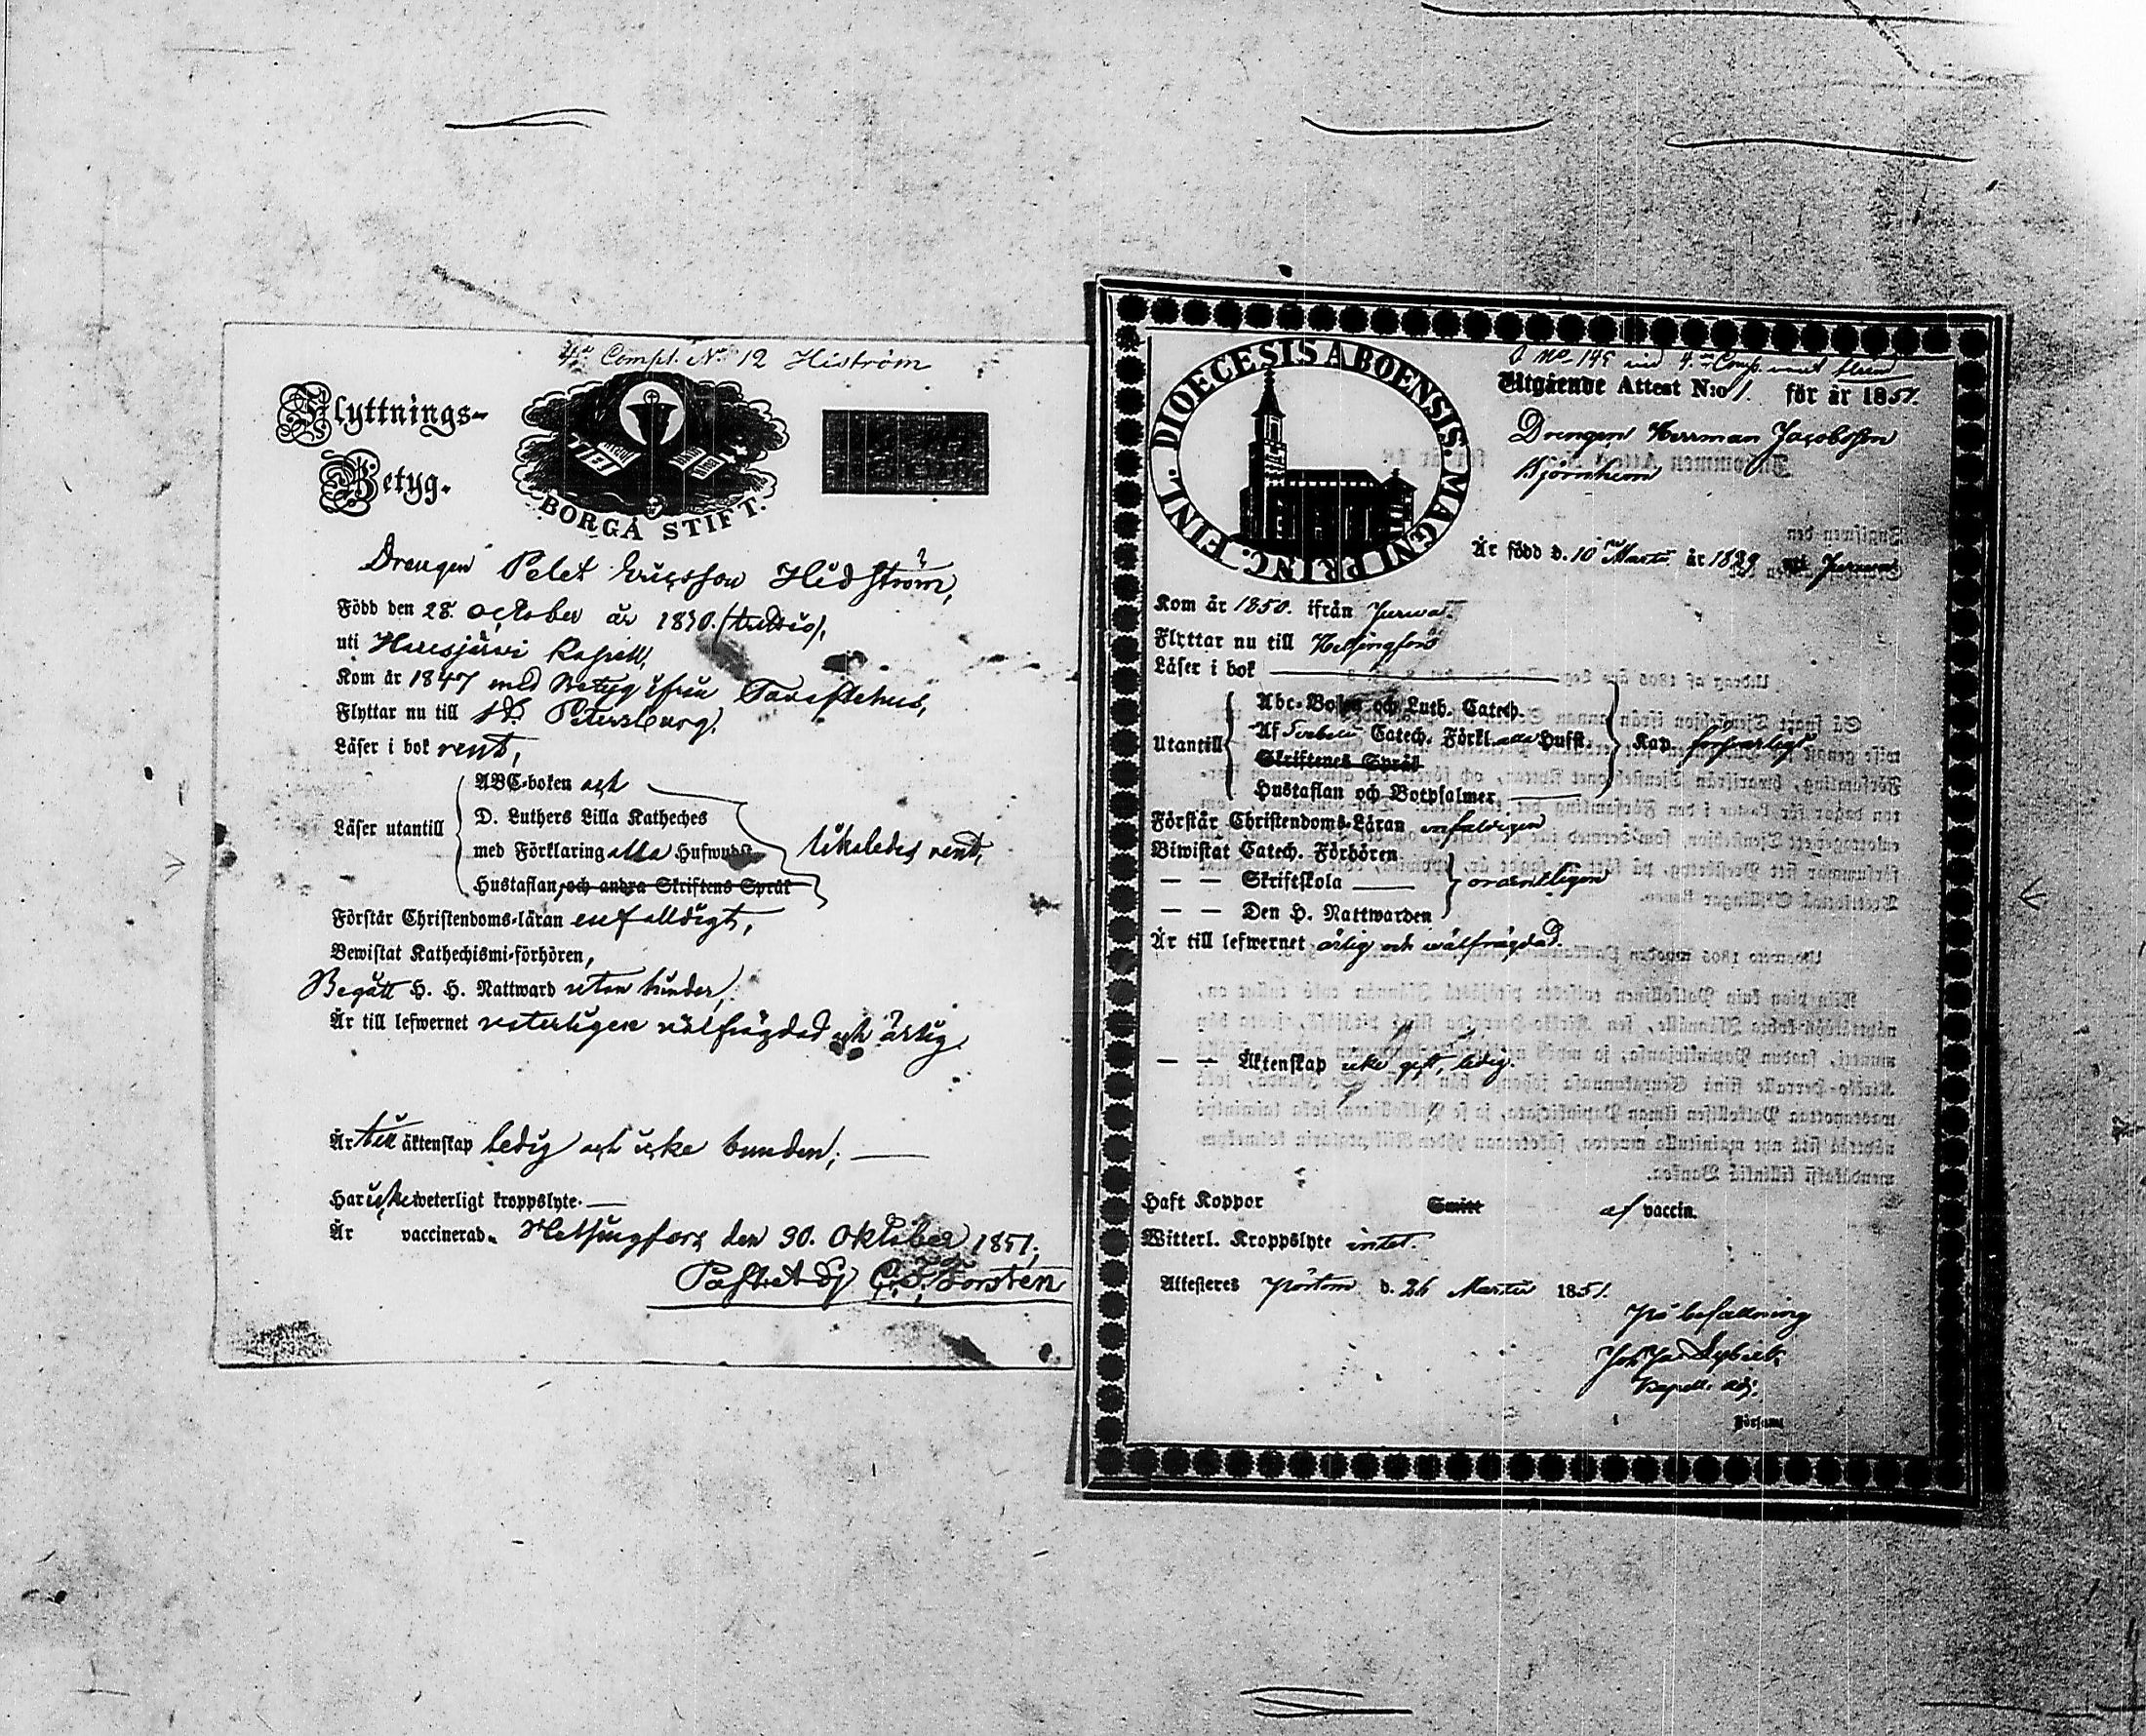 4de Comp. No 12 Hidström
Flyttnings-
Betyg.
BORGÅ STIFT.
Drengen Pelet Ericsson Hidström,
Född den 28. october år 1830. (trettio),
uti Haresjärvi Kapell,
Kom år 1847 med Betyg ifrån Tavastehus,
Flyttar nu till St. Petersburg,
Läser i bok rent,
Läser utantill
ABC-boken och
D. Luthers Lilla Katheches
med Förklaring alla Hufwudst.
Hustaflan, och andra Skriftens Språk
likaledes rent,
Förstår Christendoms-läran enfalldigt,
Bewistat Kathechismi-förhören,
Begått H. H. Nattward utan hinder,
Är till lefwernet veterligen välfrägdad och ärlig.
Är till äktenskap ledig och icke bunden;
Har icke weterligt kroppslyte.
Är vaccinerad. Helsingfors den 30. Oktober 1851;
C. F. Forstén
FINL. DIOECESIS ABOENSIS. MAGNI PRINC.
No 145 vid 4de Comp.
Utgående Attest N:o 1. för år 1851.
Drengen Herrman Jacobsson
Björnhem
Är född d. 10 Martii år 1829 uti Jurva
Kom år 1850. ifrån Jurva.
Flyttar nu till Helsingfors
Läser i bok
Utantill
Abc-Boken och Luth. Catech.
Af Svebelii Catech. Förkl. alla Hufst.
Skriftenes Språk
Hustaflan och Botpsalmer
Kap. försvarligt
Förstår Christendoms-Läran enfaldigen
Biwistat Catech. Förhören
— — Skriftskola
— — Den H. Nattwarden
ordentligen
Är till lefwernet ärlig och wälfrägdad.
— — Äktenskap icke gift, ledig.
Haft Koppor Smitt af vaccin.
Witterl. Kroppslyte intet.
Attesteres Pörtom d. 26 Martii 1851.
På befallning
Kapell. adj.
Församl